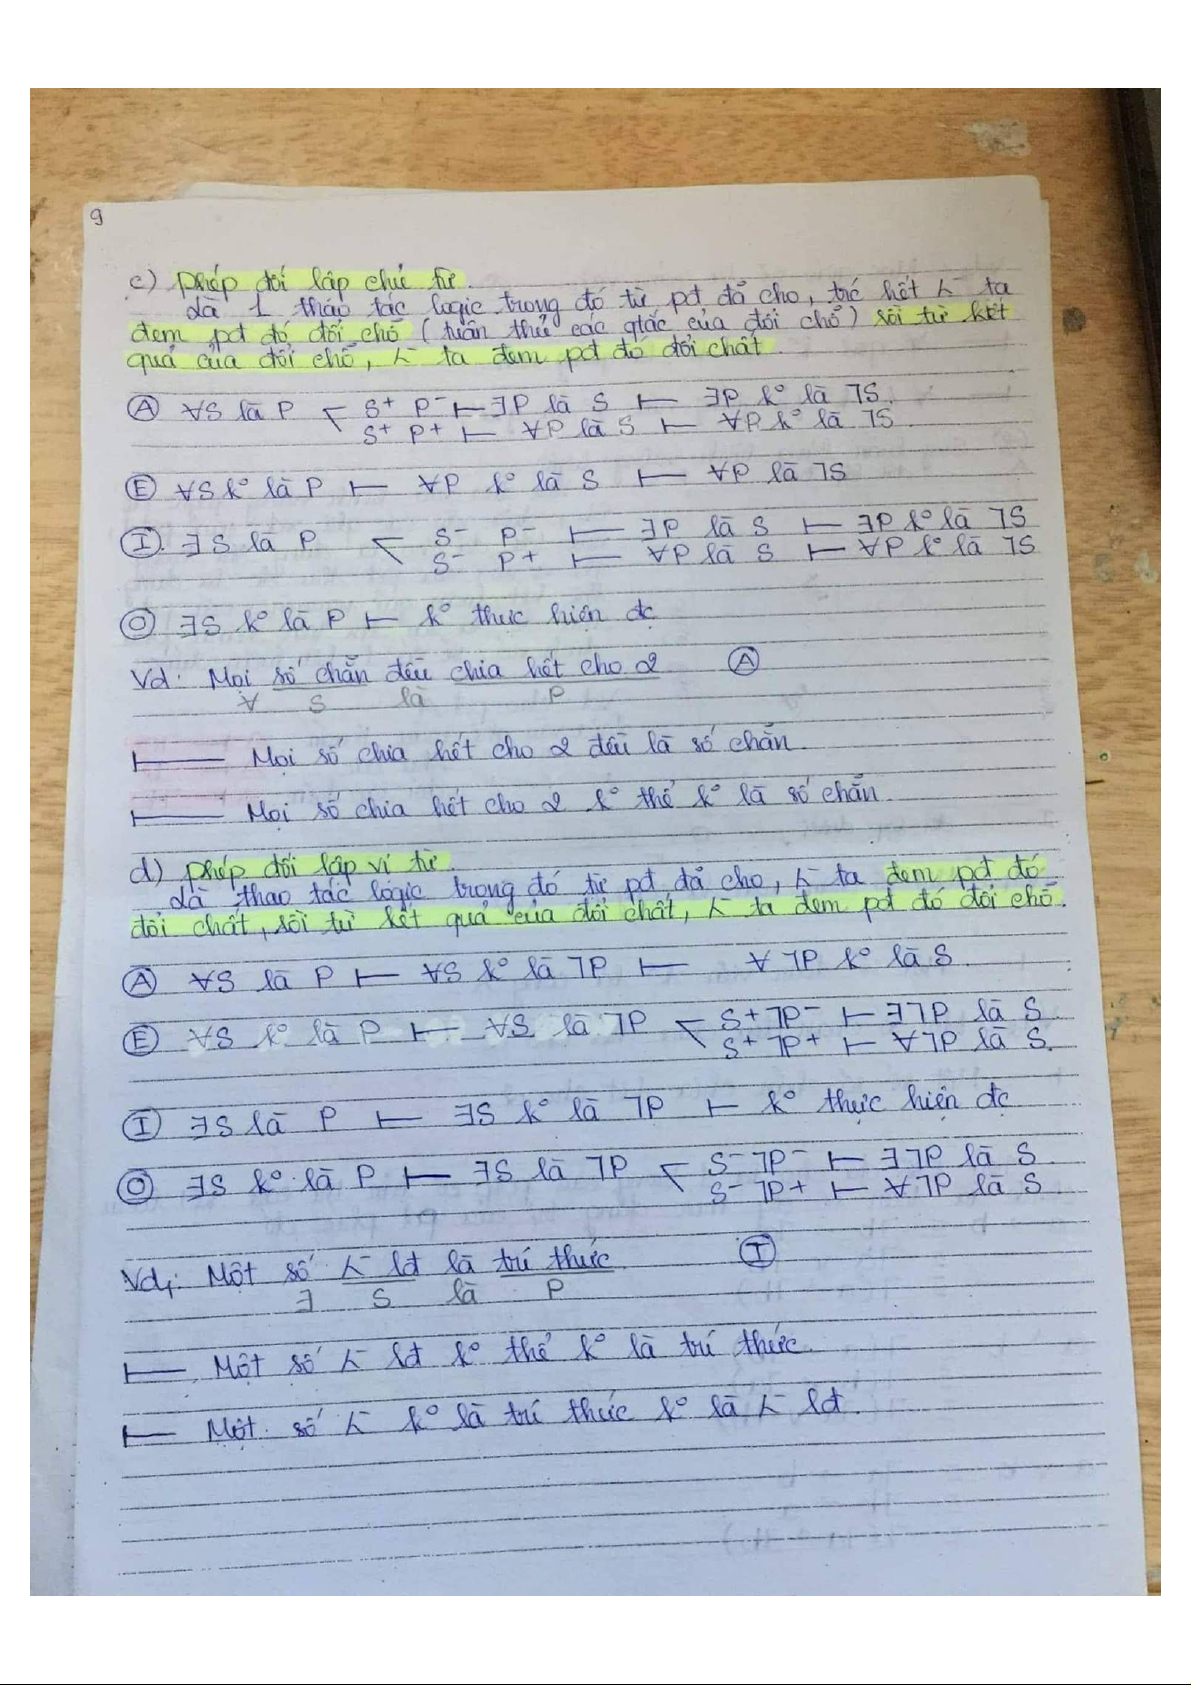 9
c) phép đối lập chủ từ.
Là 1 thao tác logic trong đó từ pđ đã cho, trc hết λ ta
đem pđ đó đổi chỗ (tuân thủ các qtắc của đổi chỗ) rồi từ kết
quả của đổi chỗ, λ ta đem pđ đó đổi chất.
Ⓐ ∀S là P < S⁺ P⁻ ⊢ ∃P là S ⊢ ∃P kº là ˥S.
S⁺ P⁺ ⊢ ∀P là S ⊢ ∀P kº là ˥S.
Ⓔ ∀S kº là P ⊢ ∀P kº là S ⊢ ∀P là ˥S
Ⓘ. ∃S là P < S⁻ P⁻ ⊢ ∃P là S ⊢ ∃P kº là ˥S
S⁻ P⁺ ⊢ ∀P là S ⊢ ∀P kº là ˥S
Ⓞ ∃S kº là P ⊢ kº thực hiện đc
Vd: Mọi số chẵn đều chia hết cho 2 Ⓐ
∀ S là P
⊢ Mọi số chia hết cho 2 đều là số chẵn.
⊢ Mọi số chia hết cho 2 kº thể kº là số chẵn.
d) phép đối lập vị từ.
Là thao tác lôgic trong đó từ pđ đã cho, λ ta đem pđ đó
đổi chất, rồi từ kết quả của đổi chất, λ ta đem pđ đó đổi chỗ.
Ⓐ ∀S là P ⊢ ∀S kº là ˥P ⊢ ∀ ˥P kº là S
Ⓔ ∀S kº là P ⊢ ∀S là ˥P < S⁺ ˥P⁻ ⊢ ∃˥P là S
S⁺ ˥P⁺ ⊢ ∀˥P là S.
Ⓘ ∃S là P ⊢ ∃S kº là ˥P ⊢ kº thực hiện đc
Ⓞ ∃S kº là P ⊢ ∃S là ˥P < S⁻ ˥P⁻ ⊢ ∃˥P là S
S⁻ ˥P⁺ ⊢ ∀˥P là S
Vd₁: Một số λ lđ là trí thức Ⓘ
∃ S là P
⊢ Một số λ lđ kº thể kº là trí thức.
⊢ Một số λ kº là trí thức kº là λ lđ.